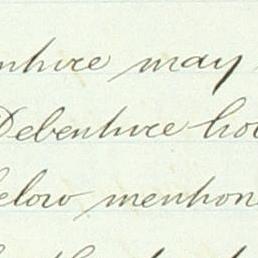 nture may
Debenture hol
elow mention